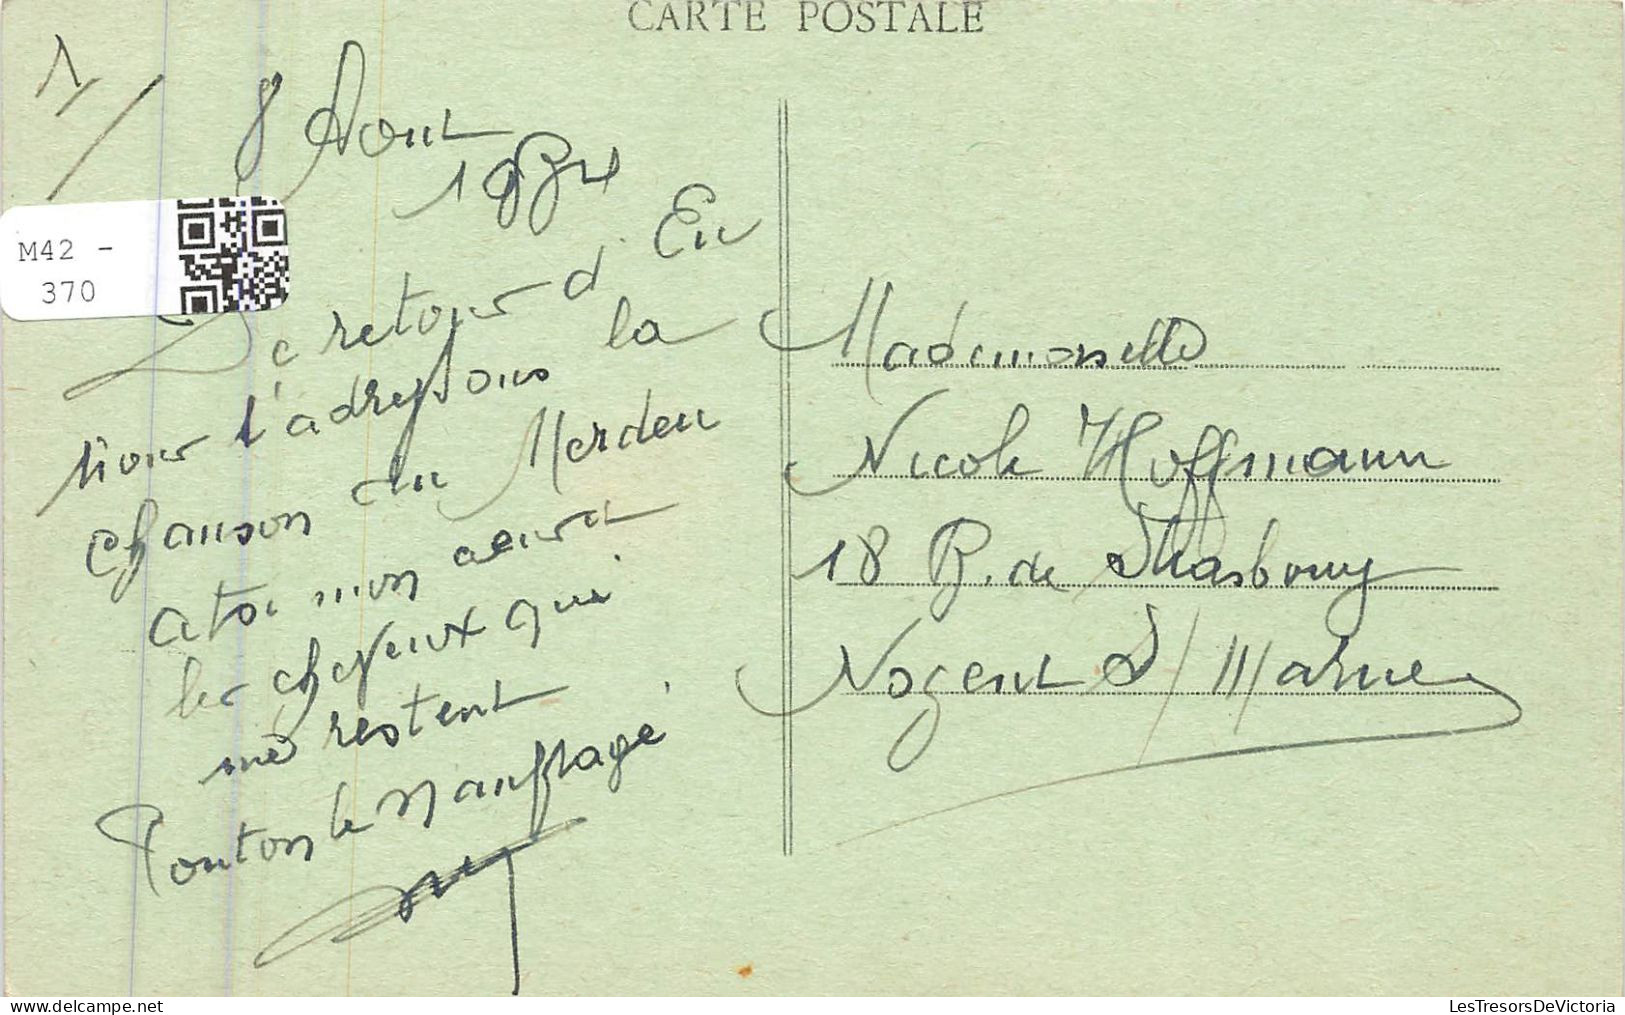 CARTE POSTALE
1/
8 Aout
1934
M42 -
370
De retour d'Eu
nous t'adressons la
chanson du Merdeu
a toi mon
les cheveux qui
me restent
Tonton le naufragé
Mademoiselle
Nicole Hoffmann
18 R. de Strasbourg
Nogent S/Marne
LesTresorsDeVictoria
www.delcampe.net